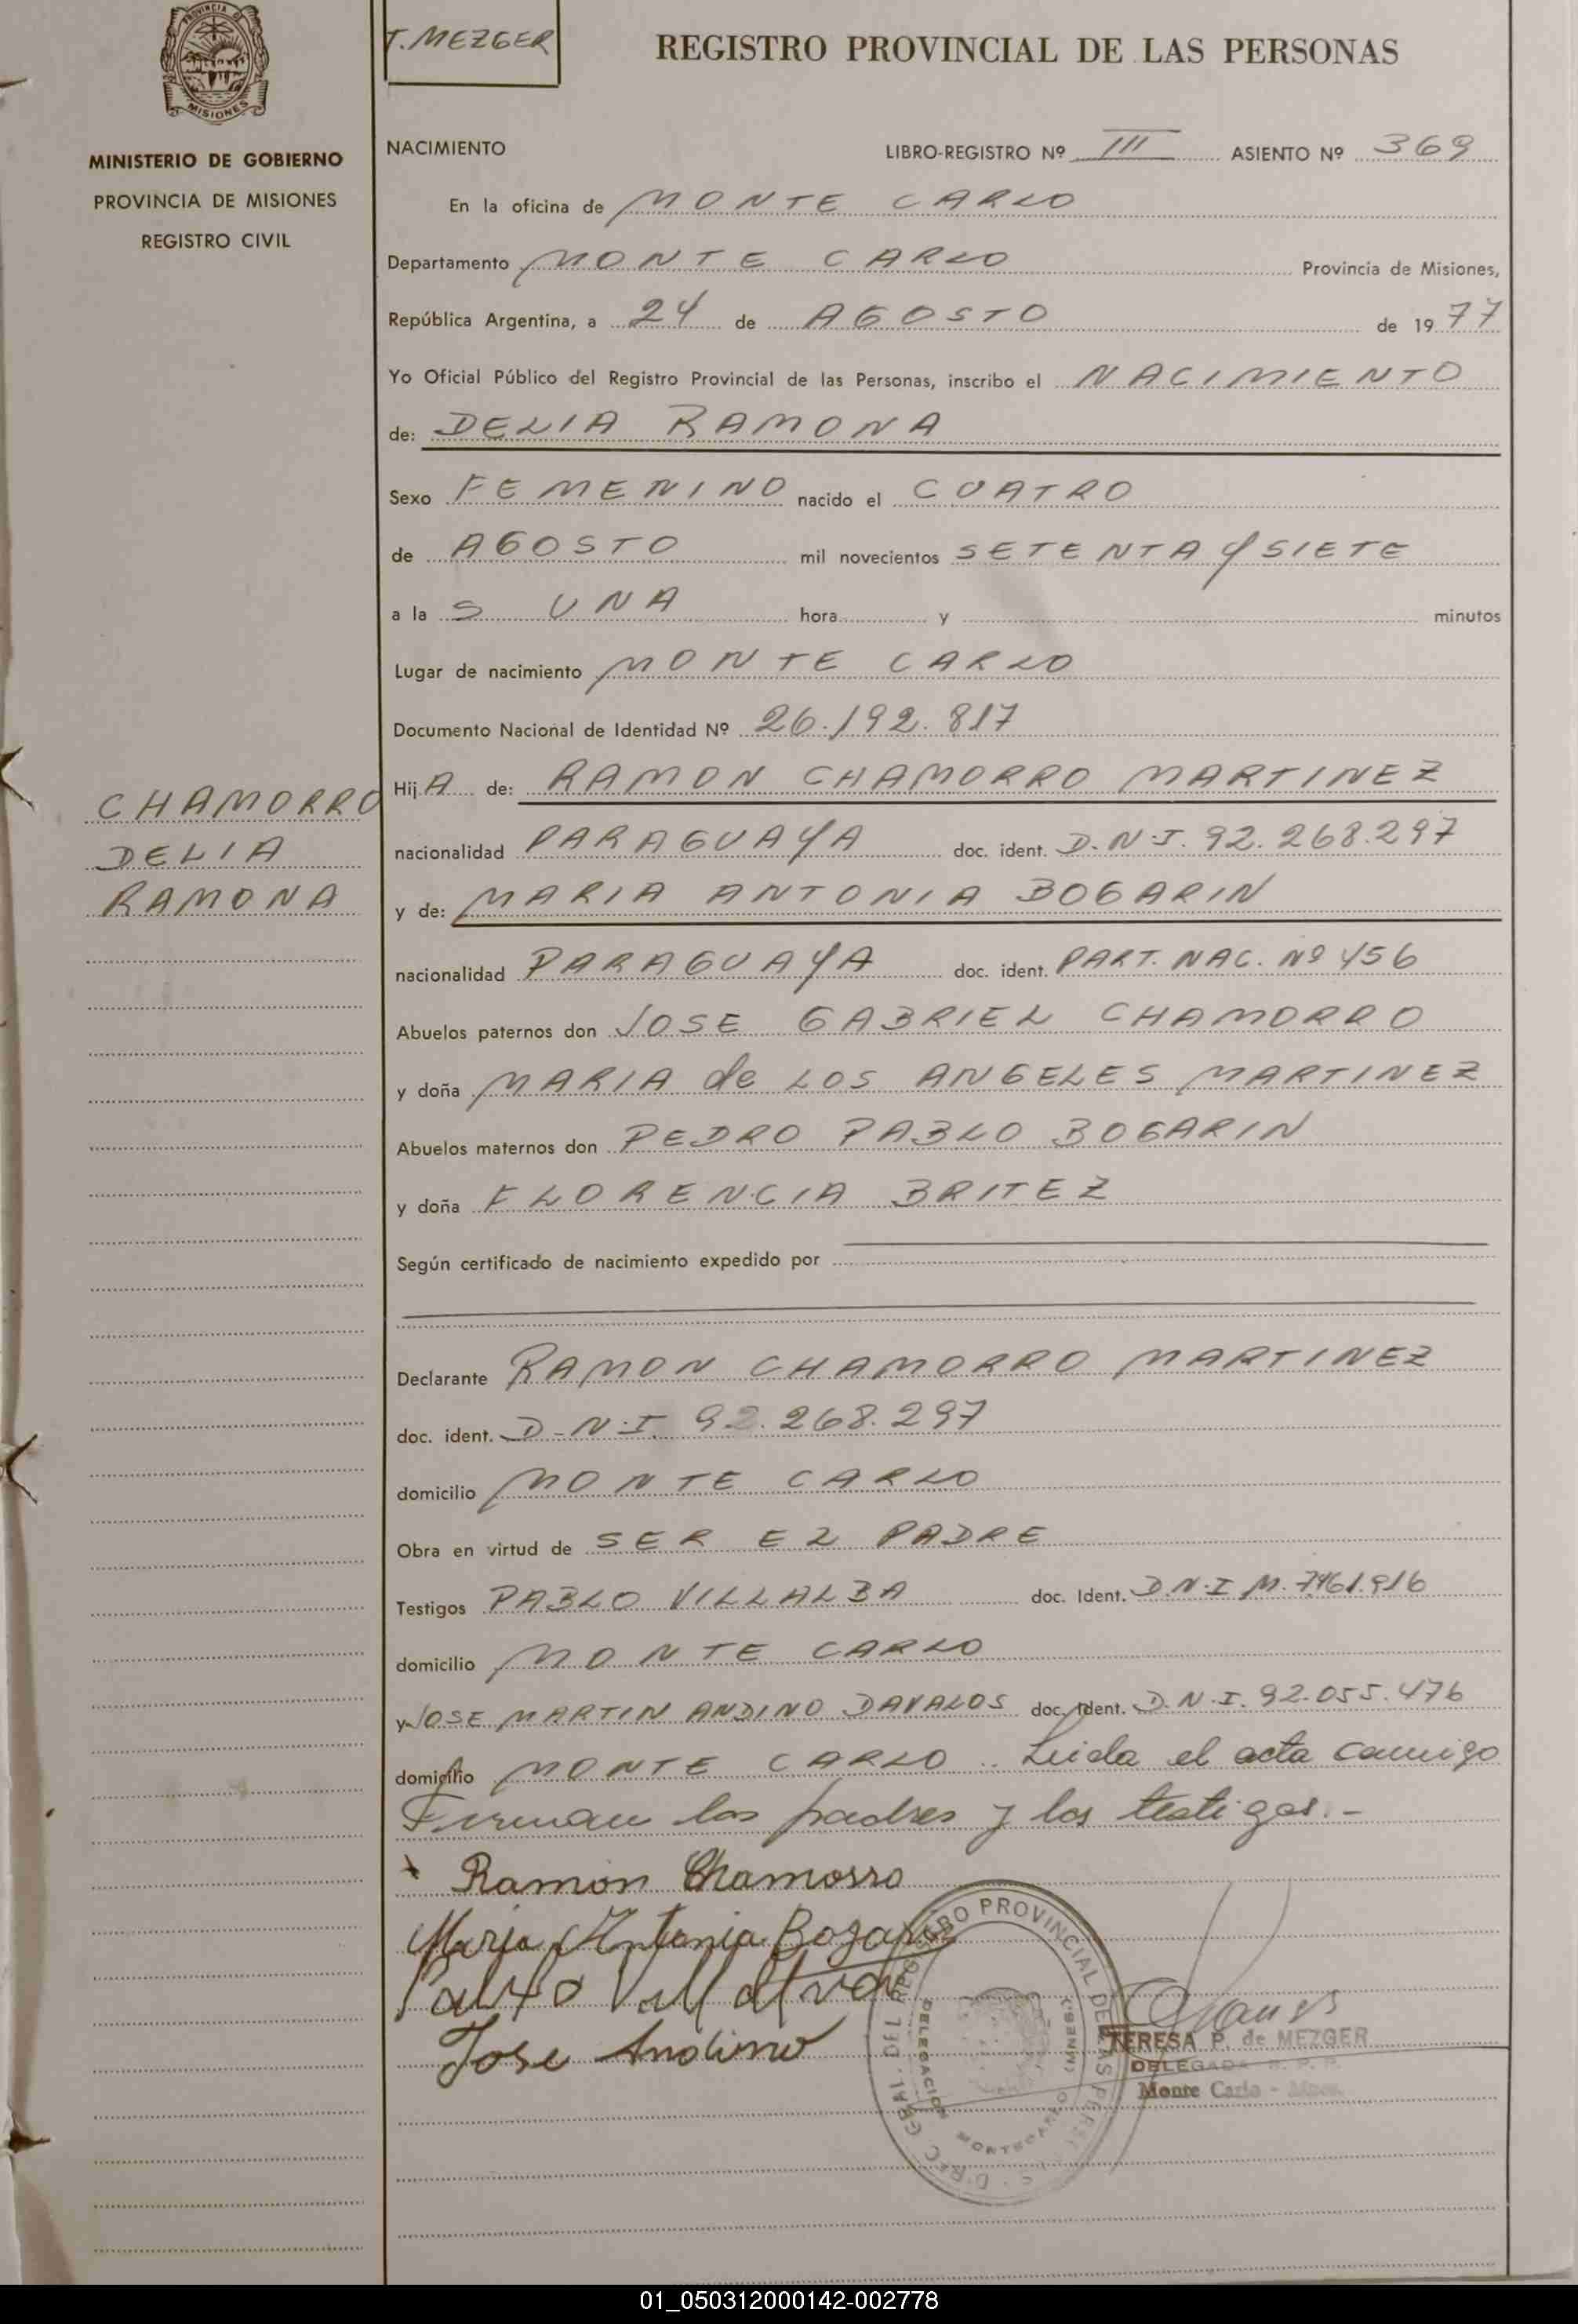 PROVINCIA DE
MISIONES
MINISTERIO DE GOBIERNO
PROVINCIA DE MISIONES
REGISTRO CIVIL
CHAMORRO
DELIA
RAMONA
T. MEZGER
REGISTRO PROVINCIAL DE LAS PERSONAS
NACIMIENTO LIBRO-REGISTRO Nº III ASIENTO Nº 369
En la oficina de MONTE CARLO
Departamento MONTE CARLO Provincia de Misiones,
República Argentina, a 24 de AGOSTO de 19 77
Yo Oficial Público del Registro Provincial de las Personas, inscribo el NACIMIENTO
de: DELIA RAMONA
Sexo FEMENINO nacido el CUATRO
de AGOSTO mil novecientos SETENTA y SIETE
a la S UNA hora y minutos
Lugar de nacimiento MONTE CARLO
Documento Nacional de Identidad Nº 26.192.817
Hij A de: RAMON CHAMORRO MARTINEZ
nacionalidad PARAGUAYA doc. ident. D.N.I. 92.268.297
y de: MARIA ANTONIA BOGARIN
nacionalidad PARAGUAYA doc. ident. PART. NAC. Nº 456
Abuelos paternos don JOSE GABRIEL CHAMORRO
y doña MARIA de LOS ANGELES MARTINEZ
Abuelos maternos don PEDRO PABLO BOGARIN
y doña FLORENCIA BRITEZ
Según certificado de nacimiento expedido por
Declarante RAMON CHAMORRO MARTINEZ
doc. ident. D-N.I. 92.268.297
domicilio MONTE CARLO
Obra en virtud de SER EL PADRE
Testigos PABLO VILLALBA doc. Ident. D.N.I M. 7461.916
domicilio MONTE CARLO
y JOSE MARTIN ANDINO DAVALOS doc. Ident. D.N.I. 92.055.476
domicilio MONTE CARLO.. Leida el acta conmigo
Firman los padres y los testigos.-
Ramon Chamorro
Maria Antonia Bogarin
Jose Andino
REGISTRO PROVINCIAL DE LAS
DELEGACION
MONTECARLO (MNES.)
TERESA P. de MEZGER
DELEGADA R. P. P.
Monte Carlo - Mnes.
01_050312000142-002778